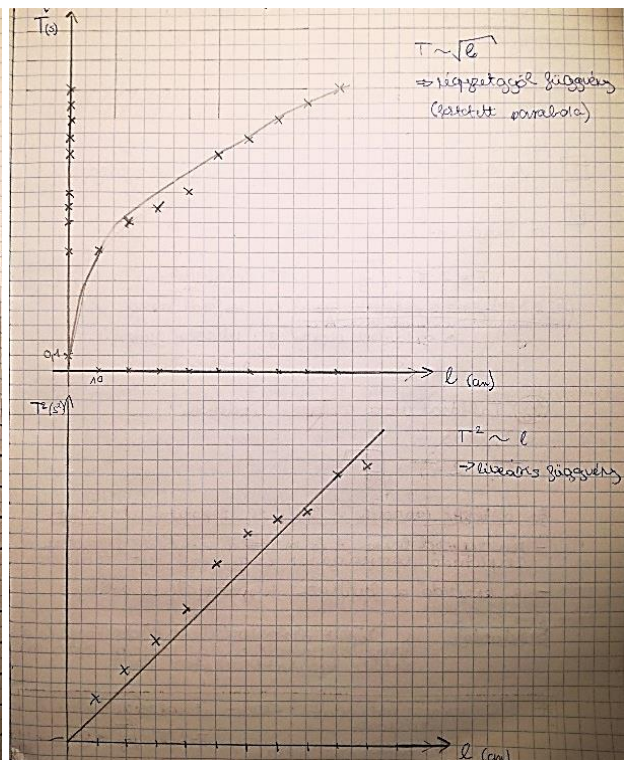 T(s)
T ~ √l
⇒ négyzetgyök függvény
(fektetett parabola)
0,1
10
l (cm)
T²(s²)
T² ~ l
→ lineáris függvény
l (cm)